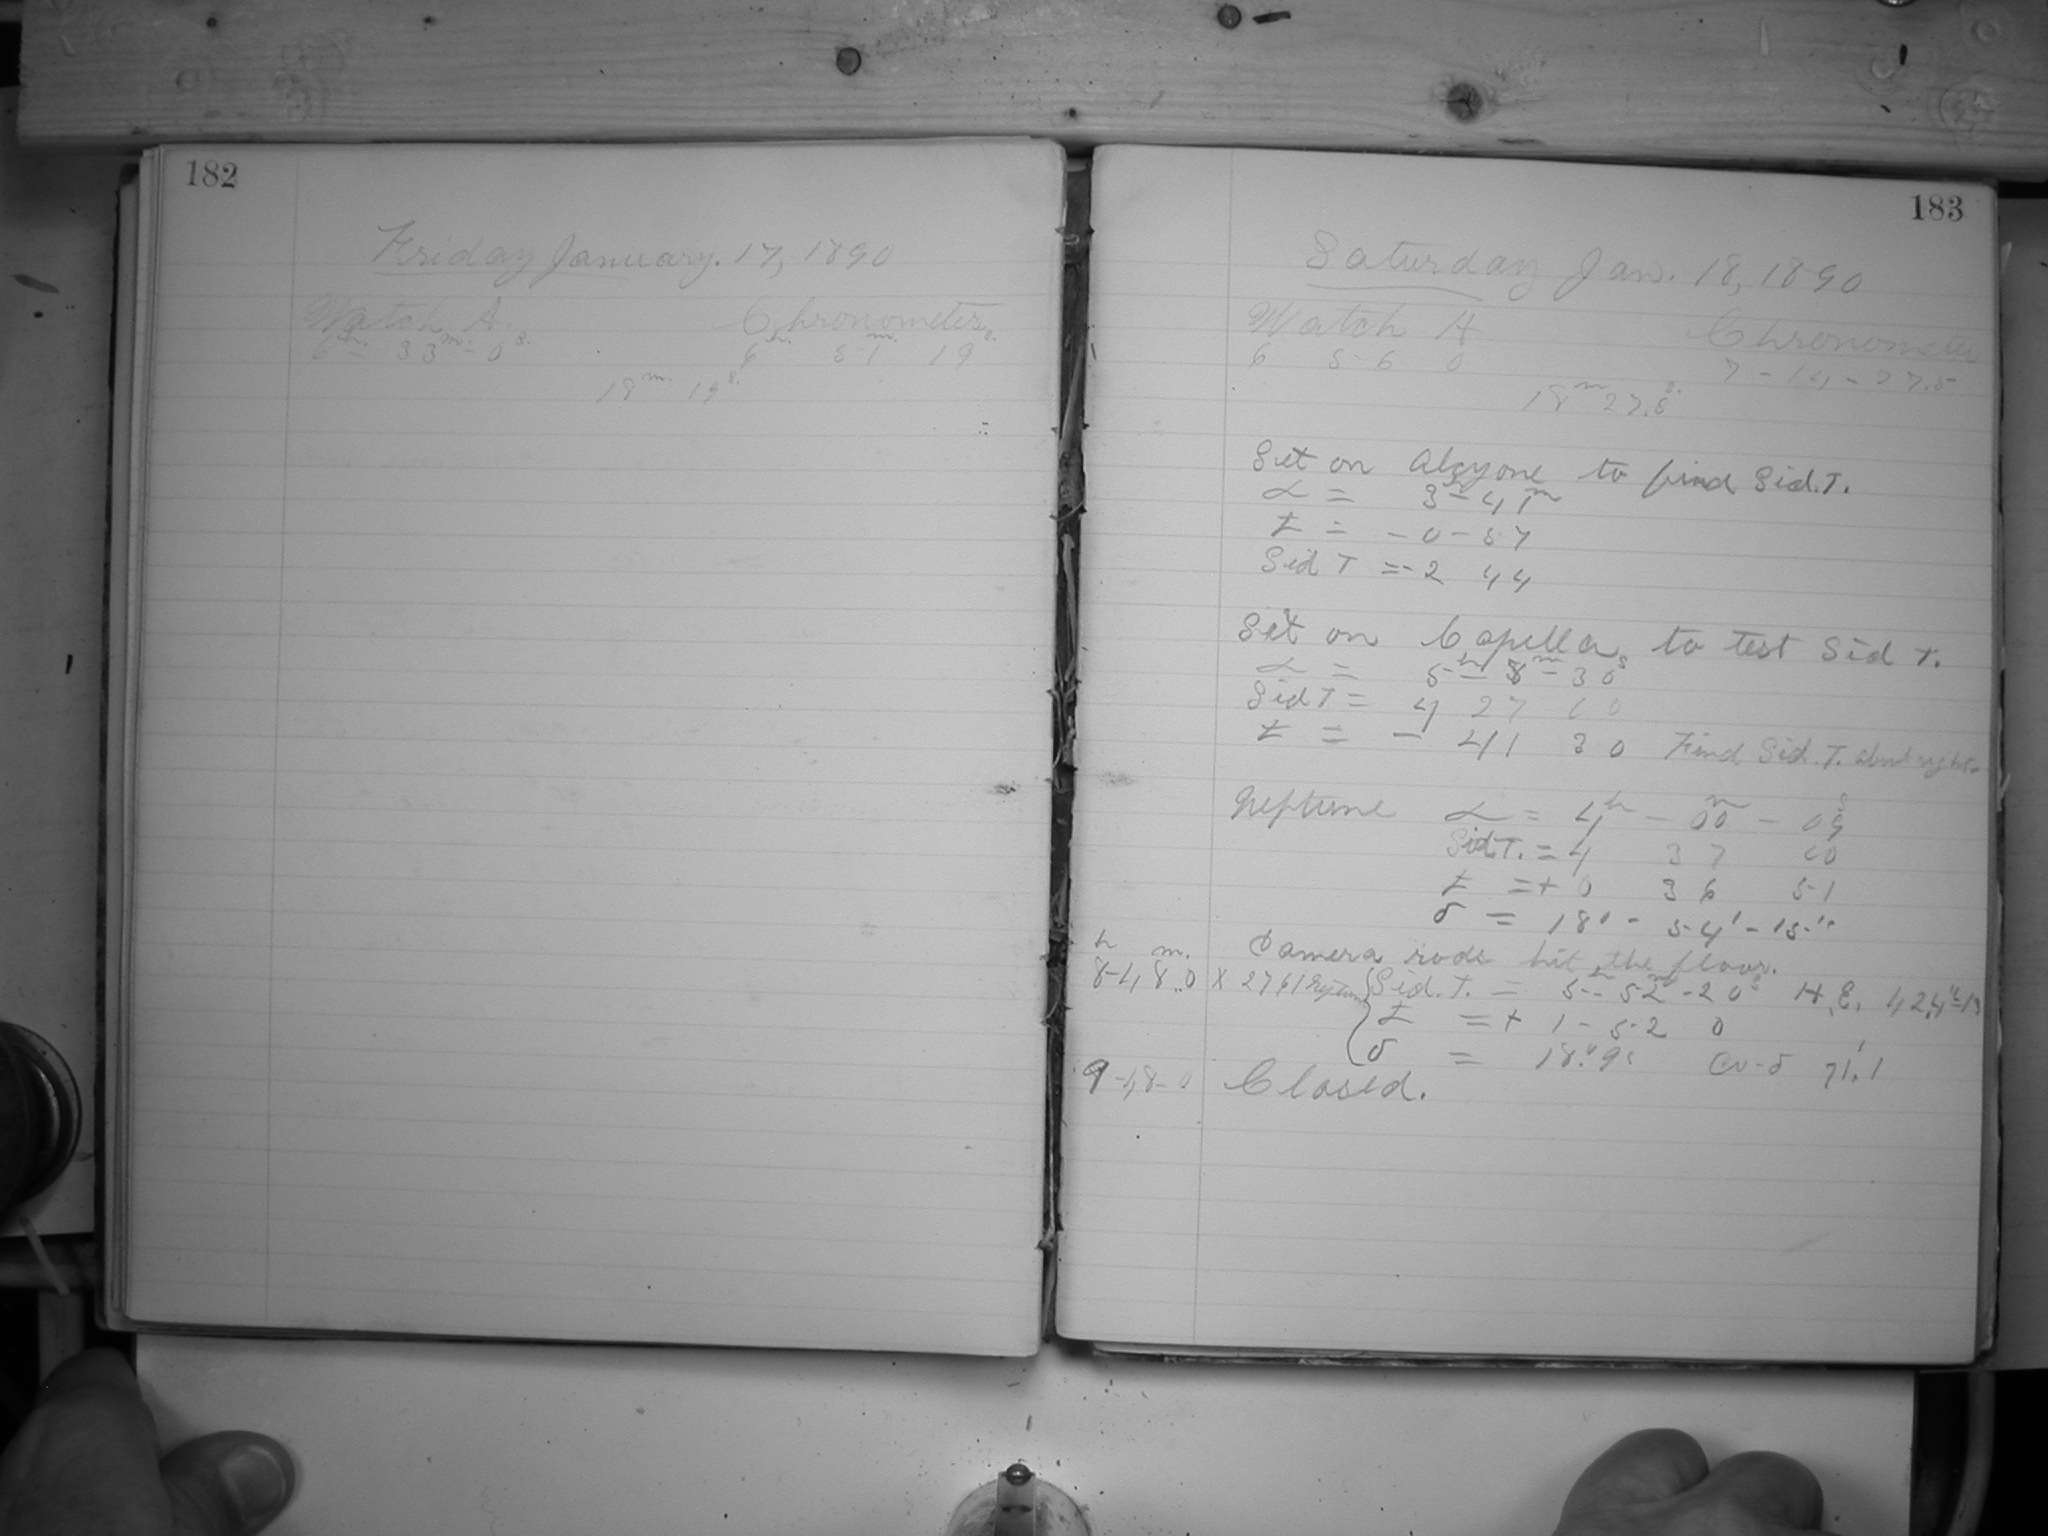 182
Friday January. 17, 1890
Watch A. Chronometer
6h. 33m. 0s. 6h. 51m. 19s.
18m. 19s.
183
Saturday Jan. 18, 1890
Watch A Chronometer
6 56 0 7-14-27.5
18m 27.5s.
Set on Alcyone to find Sid. T.
α = 3h-41m
t = -0-57
Sid T = 2 44
Set on Capella to test Sid T.
α = 5h-8m-30s
Sid T = 4 27 00
t = - 41 30 Find Sid. T. about right.
Neptune α = 4h - 00m - 09s
Sid. T. = 4 37 00
t = + 0 36 51
δ = 18° - 54' - 15"
h m. Camera rods hit the floor.
8-48.0 X 2761 Neptune Sid. T. = 5h-52m-20s H.E.
t = + 1-52 0
δ = 18° 9' Co-δ 71°.1
9-48-0 Closed.